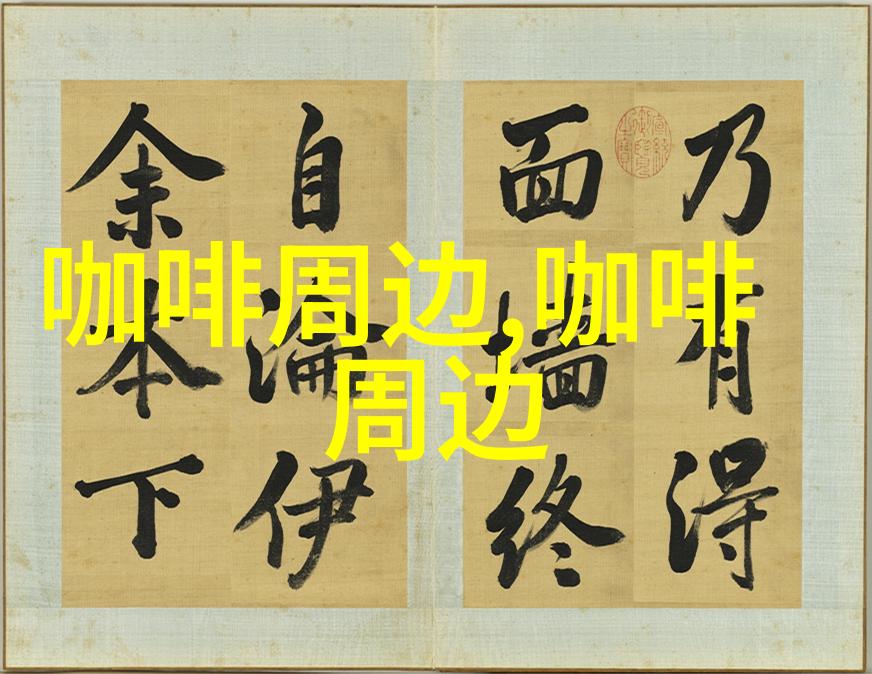 咖啡周边,咖啡
周边
乃有得
面墙終
自淪伊
余本下